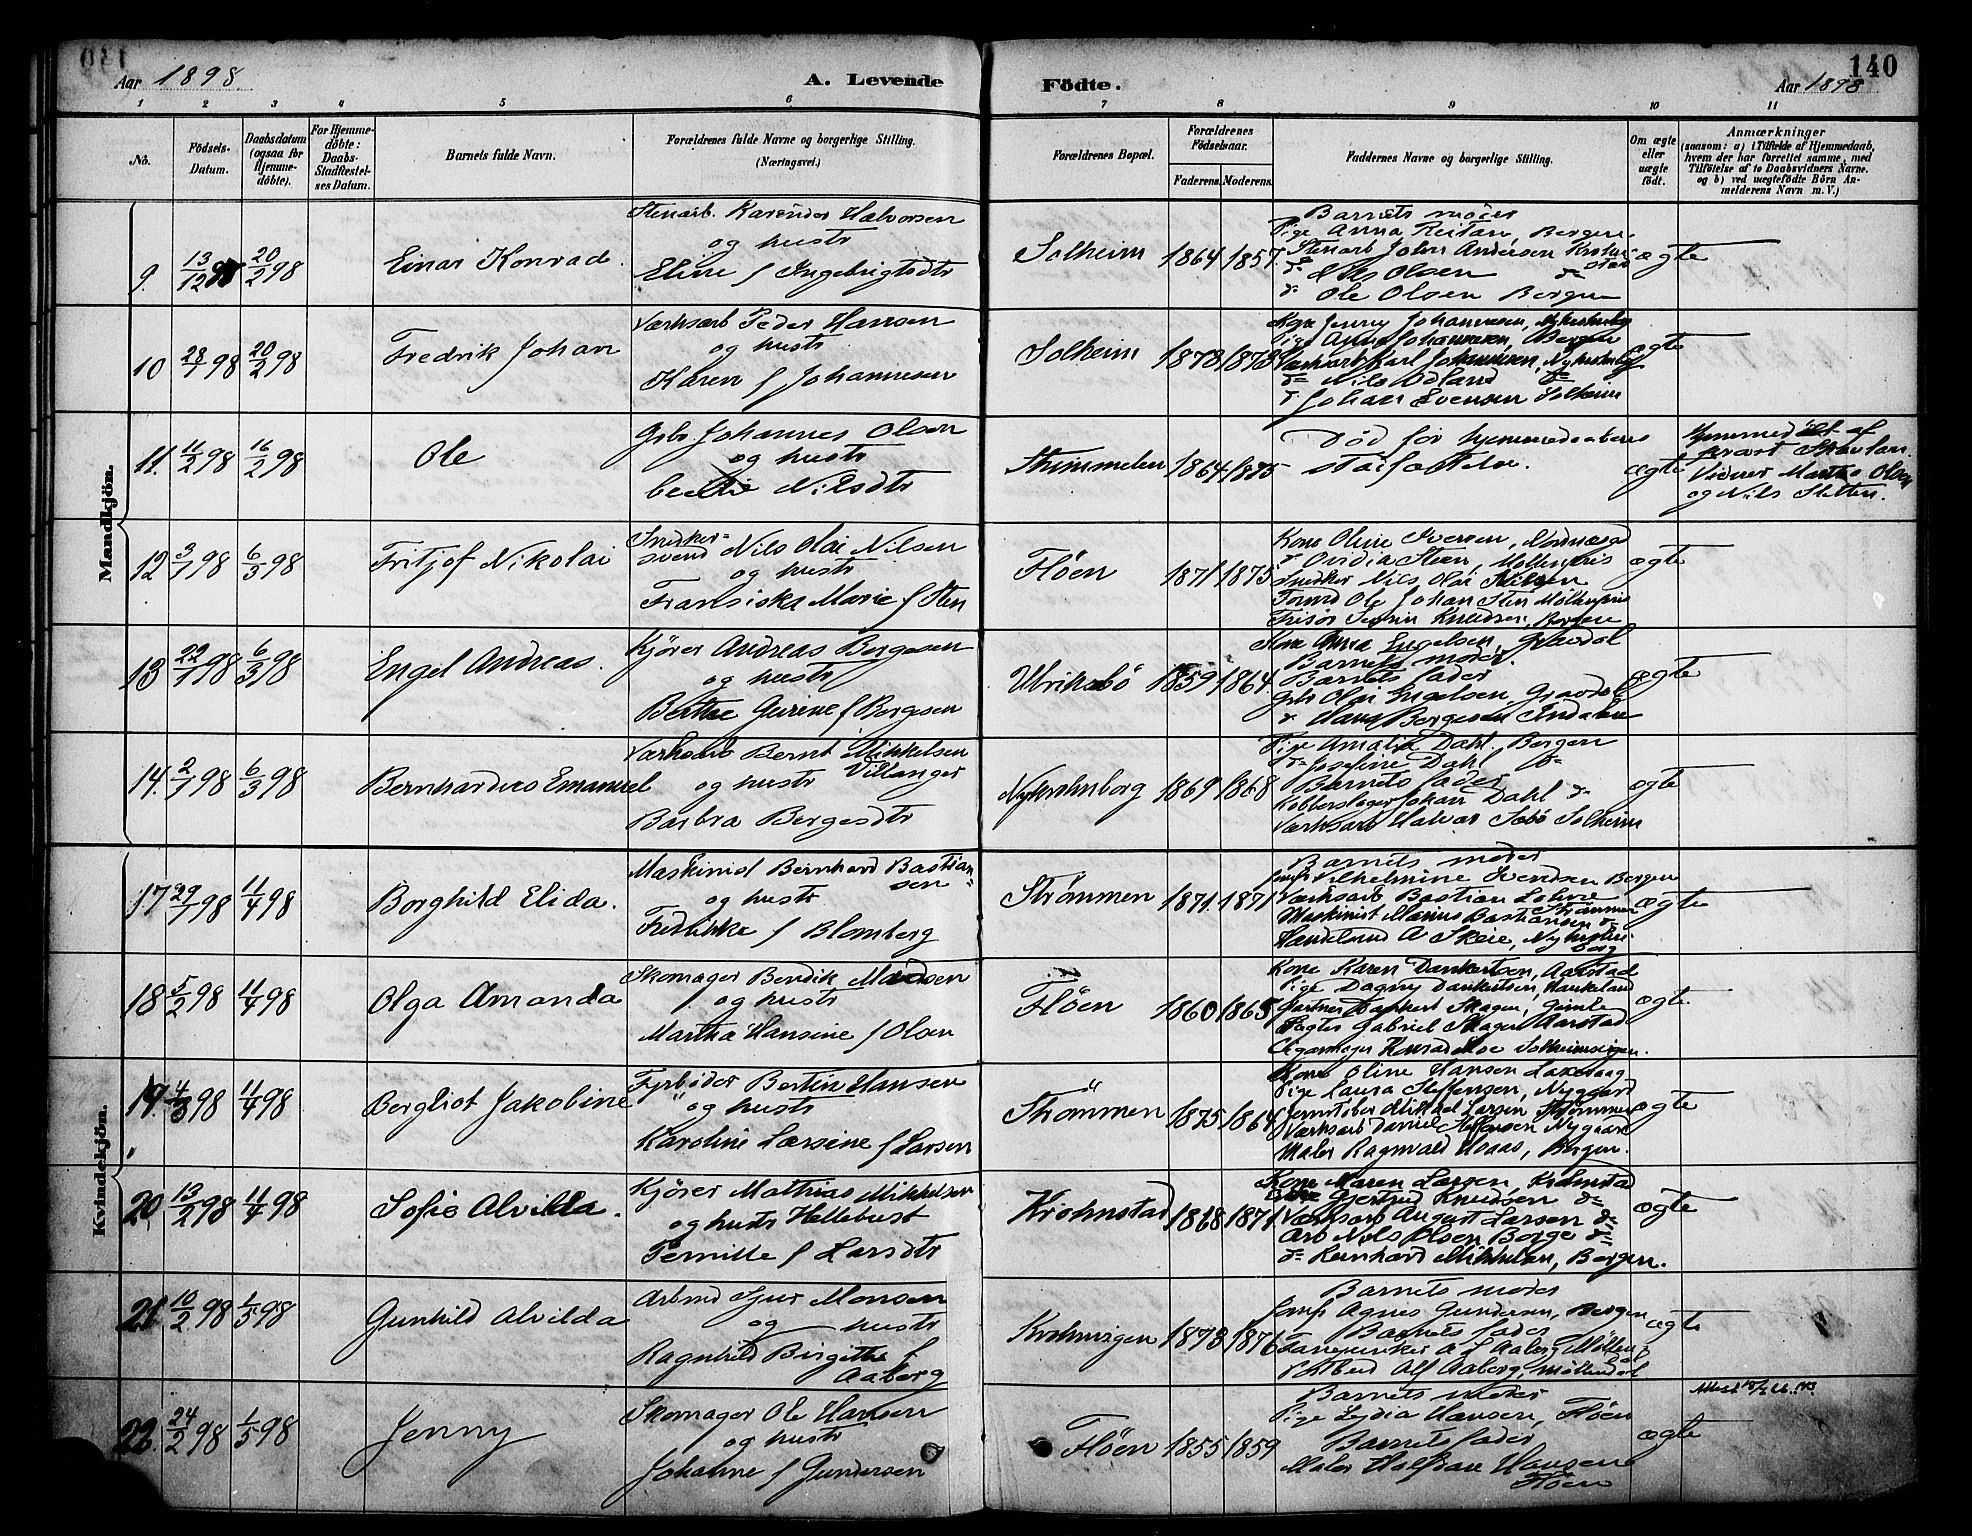 Aar 1898.
A. Levende Födte.
140
Aar 1898
1 2 3 4 5 6 7 8 9 10 11
No.
Födsels-Datum.
Daabsdatum (ogsaa for Hjemme-döbte).
For Hjemme-döbte: Daabs-Stadfæstelses Datum.
Barnets fulde Navn.
Forældrenes fulde Navne og borgerlige Stilling.
(Næringsvei.)
Forældrenes Bopæl.
Forældrenes Födselsaar.
Faderens. Moderens.
Faddernes Navne og borgerlige Stilling.
Om ægte eller uægte födt.
Anmærkninger
(saasom: a) i Tilfælde af Hjemmedaab, hvem der har forrettet samme, med Tilföielse af to Daabsvidners Navne. og b) ved uægtefödte Börn Anmelderens Navn m. V.)
Mandkjön.
9. 13/12 20/2 98 Einar Konrad.
Stenarb. Halvorsen
og hustr
Eline f Ingebrigtsdtr
Solheim 1864 1857.
Barnets moder
Pige Anna Reitan Bergen
Stenarb Johan Andersen
do Olsen do
do Ole Olsen Bergen
ægte
10 28/1 98 20/2 98 Fredrik Johan
Værksarb Peder Hansen
og hustr
Karen f Johannesen
Solheim 1873 1873
Kone Jenny Johannesen,
Pige Anna Johannesen, Bergen
Værksarb Karl Johannesen,
do Nils Odland do
do Johan Evensen Solheim
ægte
11. 11/2 98 16/2 98 Ole
Gbr Johannes Olsen
og hustr
Nilsdtr
Strimmelen 1864 1875
Død før hjemmedaabens
stadfæstelse.
ægte
Hjemmedöbt af
Vidner Olsen
og Nils Sletten.
12 3/1 98 6/3 98 Fritjof Nikolai
Snedker-
svend Nils Olai Nilsen
og hustr
Fransiska Marie f Sten
Fløen 1871 1875
Kone Oline Iversen,
do Ovidia Steen, Møllenpris
Snedker Nils Olai Nilsen
Ole Johan Sten Møllenpris
Frisör Knudsen, Bergen
ægte
13 22/1 98 6/3 98 Engel Andreas.
Kjörer Andreas Bergesen
og hustr
Berthe Gurine f Borgesen
Ulrikebö 1859 1864
Kone Anna Engelsen, Gravdal
Barnets moder.
Barnets fader
Gbr Olai Engelsen, Gravdal
do Hans Bergesen Indalen
ægte
14. 2/1 98 6/3 98 Bernhardus Emanuel
Værksarb Bernt Mikkelsen
og hustr Villanger
Barbra Bergesdtr
Nykrohnborg 1869 1868
Pige Amalia Dahl. Bergen
do Josefine Dahl do
Barnets fader
Kobberslager Johan Dahl do
Værksarb Halvar Sæbö Solheim
ægte
Kvindekjön.
17 29/1 98 11/4 98 Borghild Elida.
Maskinist Bernhard Bastian-
sen
og hustr
Fredrikke f Blomberg
Strømmen 1871. 1871
Barnets moder
Vilhelmine Svendsen Bergen
Værksarb Bastian
Maskinist Marius Bastiansen do
Handelsmd A Skeie,
ægte
18 5/2 98 11/4 98 Olga Amanda
Skomager Bendik Madsen
og hustr
Martha Hansine f Olsen
Fløen 1860 1865
Kone Karen Dankertsen, Aarstad
Pige Dagny Dankertsen, Haukeland
Gartner Dankert Skagen, Gimle
Gabriel Skagen Aarstad
Cigarmager Konrad Moe Solheimsvigen.
ægte
19. 4/3 98 11/4 98 Borgliot Jakobine
Fyrböder Bertin Hansen
og hustr
Karoline Larsine f Larsen
Strømmen 1875 1864
Kone Oline Hansen Laxevaag
Pige Laura Steffensen, Nygaard
Jernstöber Mikkel Larsen Strømmen
Værksarb Daniel Steffensen Nygaard
Maler Ragnvald Haas, Bergen.
ægte
20 13/2 98 11/4 98 Sofie Alvilda.
Kjörer Mathias Mikkelsen
og hustr Hellebust
Pernille f Larsdtr
Krohnstad 1868 1871.
Kone Maren Larsen, Krohnstad
Gjertrud Knudsen do
Værksarb August Larsen do
Arb Nils Olsen Borge do
do Reinhard Mikkelsen, Bergen.
ægte
21 10/2 98 1/5 98 Gunhild Alvilda
Arbmd Sjur Monsen
og hustr
Ragnhild Birgitte f
Aaberg
Krohnvigen 1873 1876
Barnets moder
Agnes Gundersen, Bergen
Barnets fader
A J Aaberg, Möllendal
Alf Aaberg, Møllendal
ægte
22. 24/2 98 1/5 98 Jenny
Skomager Ole Hansen
og hustr
Johanne f Gundersen
Fløen 1855 1859
Barnets moder
Pige Lydia Hansen, Fløen
Barnets fader
Maler Halfdan Hansen
Fløen
ægte